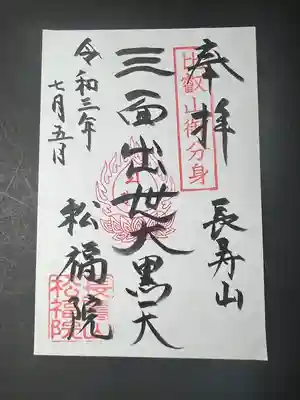 奉拝
比叡山御分身
長寿山
三面出世大黒天
松福院
令和三年
七月五日
長寿山
松福院